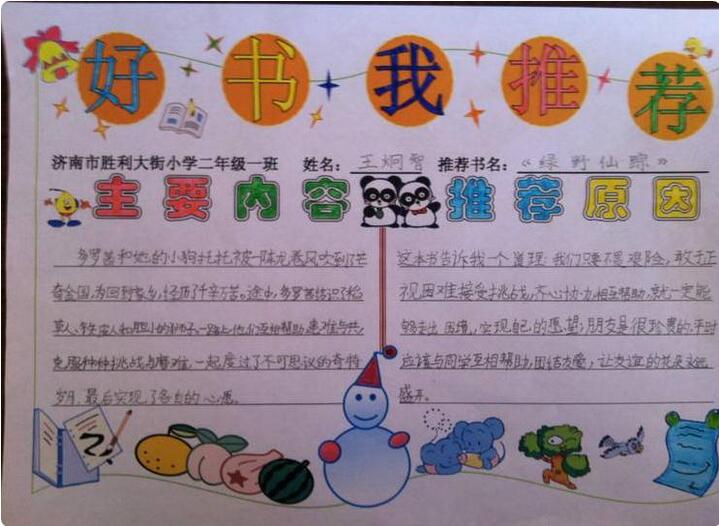 好书我推荐
济南市胜利大街小学二年级一班 姓名：王炯智 推荐书名：《绿野仙踪》
主要内容 推荐原因
多罗茜和她的小狗托托被一阵龙卷风吹到了芒
奇金国,为回到家乡,经历了千辛万苦。途中,多罗茜结识了稻
草人、铁皮人和胆小的狮子,一路上他们互相帮助,患难与共,
克服种种挑战与磨难,一起度过了不可思议的奇特
岁月,最后实现了各自的心愿。
这本书告诉我一个道理:我们只要不畏艰险,敢于正
视困难接受挑战,齐心协力,相互帮助,就一定能
够走出困境,实现自己的愿望;朋友是很珍贵的,平时
应该与同学互相帮助,团结友爱,让友谊的花朵永远
盛开。